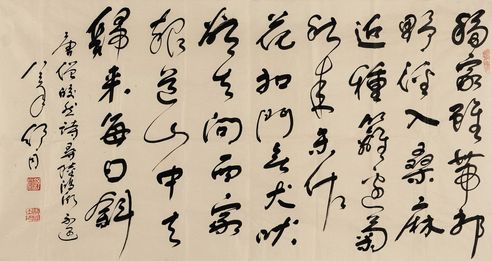 移家雖帶郭
野徑入桑麻
近種籬邊菊
秋來未着
花扣門無犬吠
欲去問西家
報道山中去
歸來每日斜
唐僧皎然詩尋陸鴻漸不遇